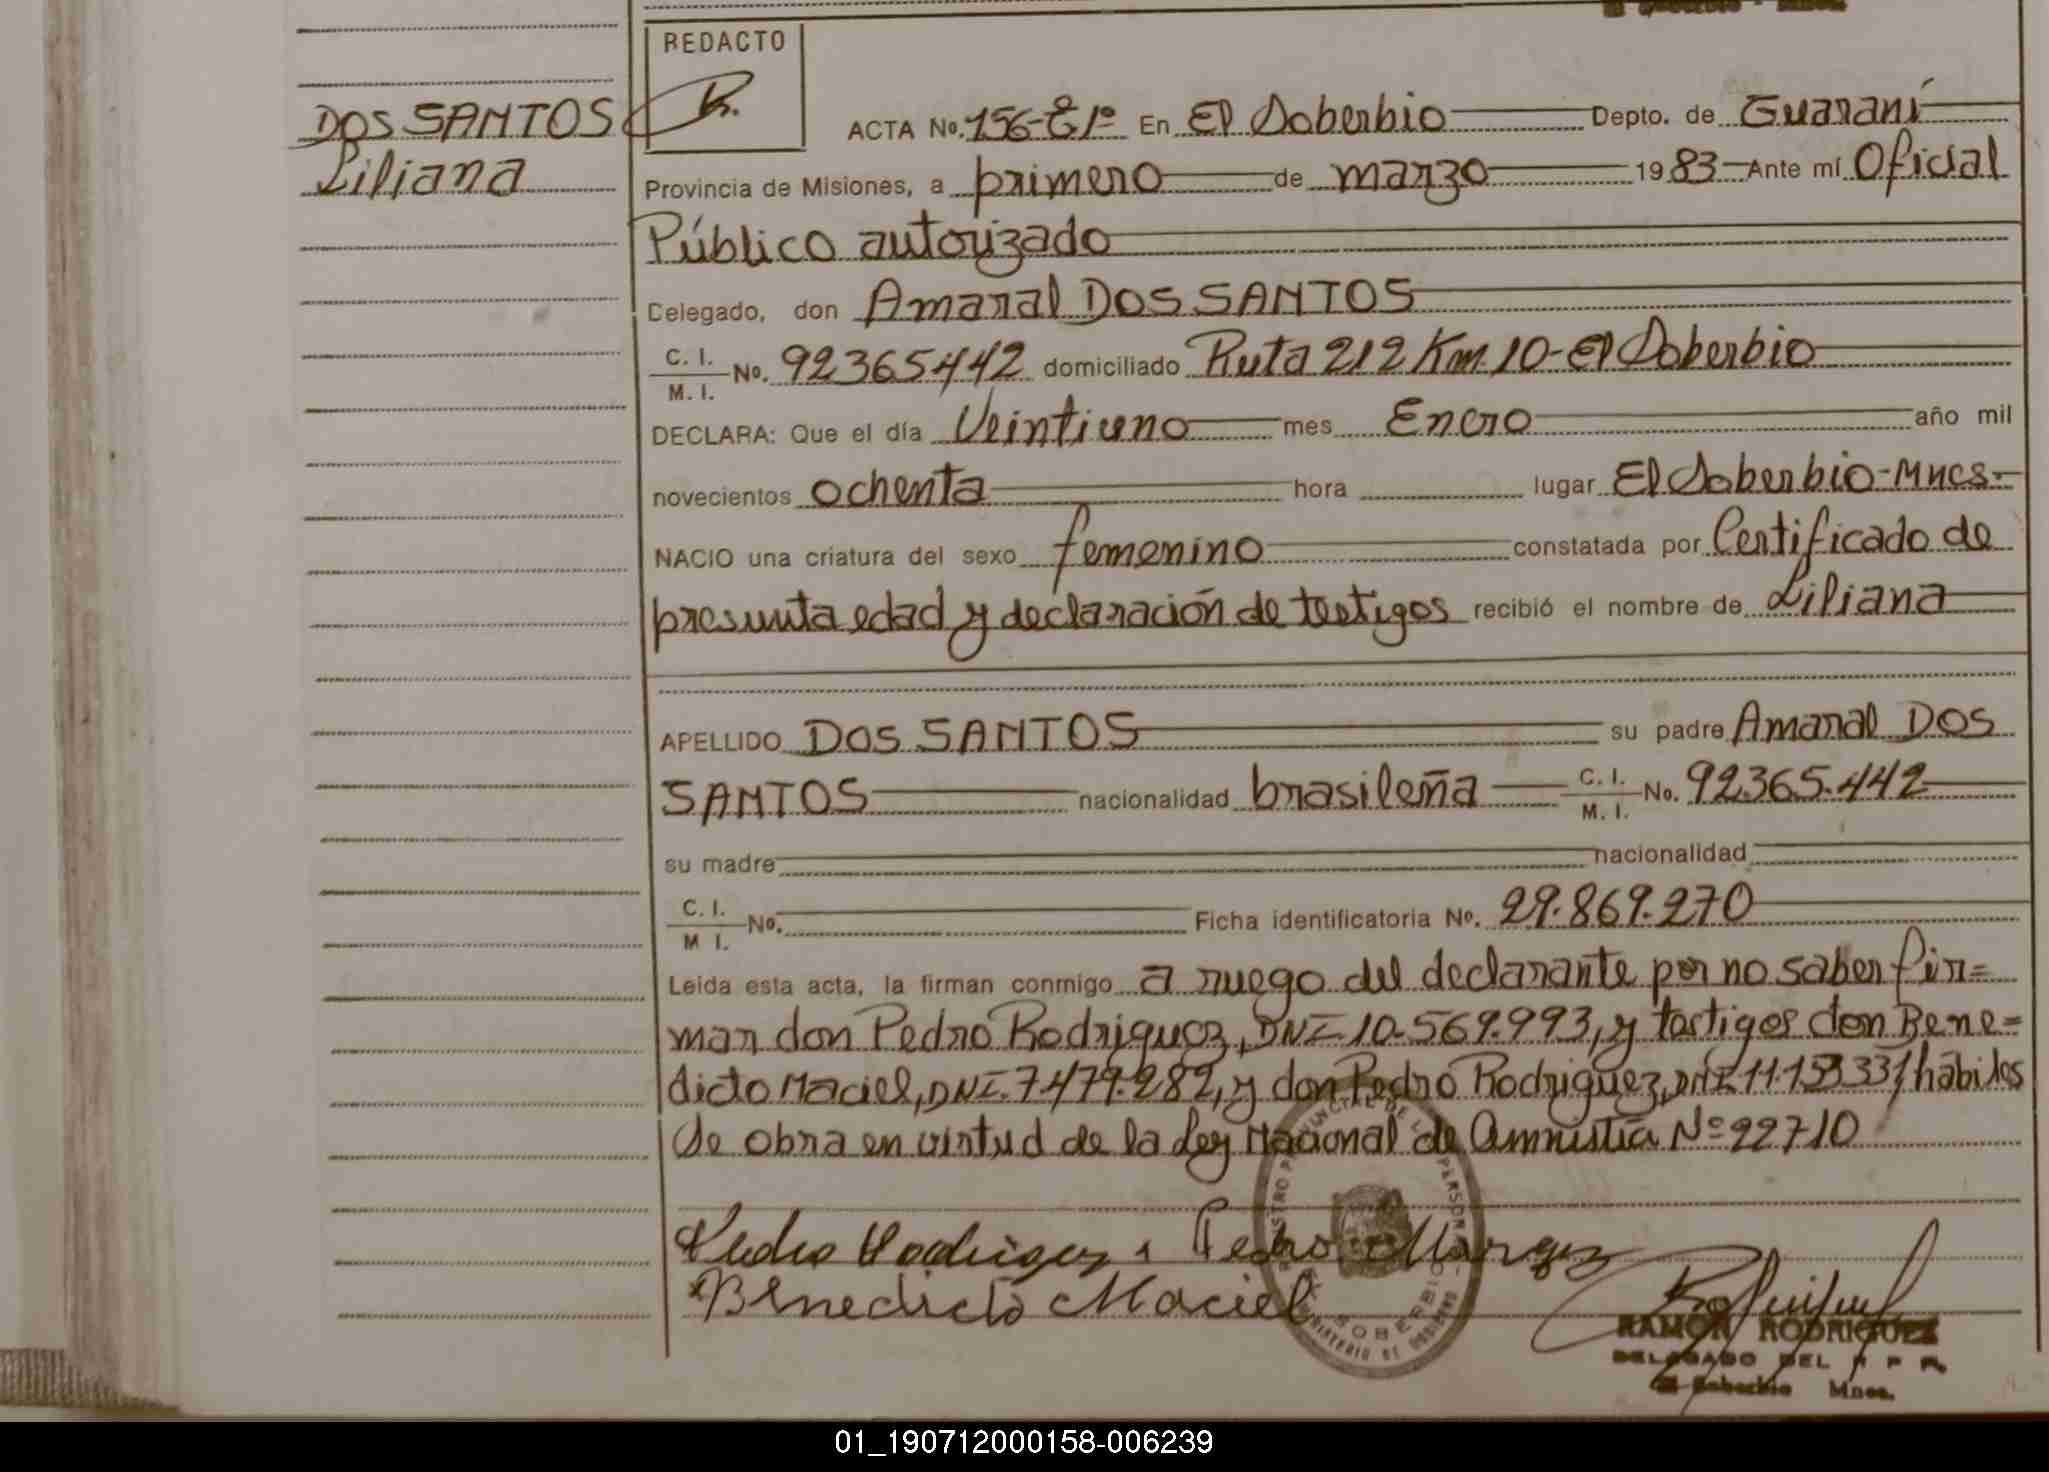 REDACTO
DOS SANTOS
Liliana
ACTA No. 156-E1º En El Soberbio Depto. de Guaraní
Provincia de Misiones, a primero de marzo 1983 Ante mí Oficial
Público autorizado
Delegado, don Amaral DOS SANTOS
C. I. M. I. No. 92365442 domiciliado Ruta 212 Km. 10 - El Soberbio
DECLARA: Que el día Veintiuno mes Enero año mil
novecientos ochenta hora lugar El Soberbio-Mnes-
NACIO una criatura del sexo femenino constatada por Certificado de
presunta edad y declaración de testigos recibió el nombre de Liliana
APELLIDO DOS SANTOS su padre Amaral DOS
SANTOS nacionalidad brasileña C. I. M. I. No. 92.365.442
su madre nacionalidad
C. I. M I. No. Ficha identificatoria No. 29.869.270
Leída esta acta, la firman conmigo a ruego del declarante por no saber fir=
mar don Pedro Rodriguez, DNI 10.569.993, y testigos don Bene=
dicto Maciel, DNI. 7.479.282, y don Pedro Rodriguez, DNI. hábiles
Se obra en virtud de la Ley Nacional de Amnistía Nº 22710
Pedro Rodriguez Pedro Marquez
Benedicto Maciel
RAMON RODRIGUEZ
DELEGADO DEL R P P.
El Soberbio Mnes.
01_190712000158-006239